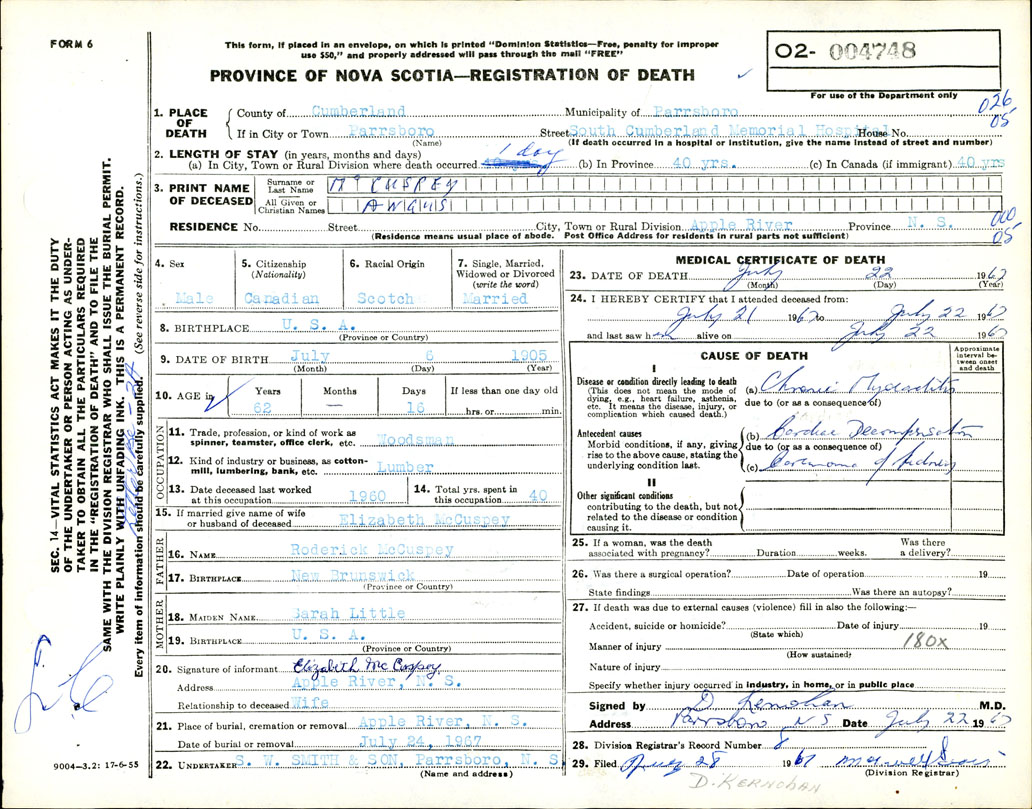 FORM 6
This form, if placed in an envelope, on which is printed "Dominion Statistics—Free, penalty for improper
use $50," and properly addressed will pass through the mail "FREE"
PROVINCE OF NOVA SCOTIA—REGISTRATION OF DEATH
02- 004748
For use of the Department only
026
05
1. PLACE OF DEATH
County of Cumberland Municipality of Parrsboro
If in City or Town Parrsboro Street South Cumberland Memorial Hospital House No.
(Name) (If death occurred in a hospital or institution, give the name instead of street and number)
2. LENGTH OF STAY (in years, months and days) 1 day
(a) In City, Town or Rural Division where death occurred (b) In Province 40 yrs. (c) In Canada (if immigrant) 40 yrs
3. PRINT NAME OF DECEASED
Surname or Last Name McCUSPEY
All Given or Christian Names ANGUS
RESIDENCE No. Street City, Town or Rural Division Apple River Province N. S.
(Residence means usual place of abode. Post Office Address for residents in rural parts not sufficient)
000
05
4. Sex Male
5. Citizenship (Nationality) Canadian
6. Racial Origin Scotch
7. Single, Married, Widowed or Divorced (write the word) Married
8. BIRTHPLACE U. S. A.
(Province or Country)
9. DATE OF BIRTH July 6 1905
(Month) (Day) (Year)
10. AGE in Years 62 Months — Days 16 If less than one day old hrs. or min.
OCCUPATION
11. Trade, profession, or kind of work as spinner, teamster, office clerk, etc. Woodsman
12. Kind of industry or business, as cotton-mill, lumbering, bank, etc. Lumber
13. Date deceased last worked at this occupation 1960
14. Total yrs. spent in this occupation 40
15. If married give name of wife or husband of deceased Elizabeth McCuspey
FATHER
16. NAME Roderick McCuspey
17. BIRTHPLACE New Brunswick
(Province or Country)
MOTHER
18. MAIDEN NAME Sarah Little
19. BIRTHPLACE U. S. A.
(Province or Country)
20. Signature of informant Elizabeth McCuspey
Address Apple River, N. S.
Relationship to deceased Wife
21. Place of burial, cremation or removal Apple River, N. S.
Date of burial or removal July 24, 1967
22. UNDERTAKER S. W. SMITH & SON, Parrsboro, N. S.
(Name and address)
MEDICAL CERTIFICATE OF DEATH
23. DATE OF DEATH July 22 1967
(Month) (Day) (Year)
24. I HEREBY CERTIFY that I attended deceased from:
July 21 1967 to July 22 1967
and last saw him alive on July 22 1967
CAUSE OF DEATH
Approximate interval between onset and death
I
Disease or condition directly leading to death
(This does not mean the mode of dying, e.g., heart failure, asthenia, etc. It means the disease, injury, or complication which caused death.)
(a) Chronic Myocarditis
due to (or as a consequence of)
Antecedent causes
Morbid conditions, if any, giving rise to the above cause, stating the underlying condition last.
(b) Cardiac Decompensation
due to (or as a consequence of)
(c) Carcinoma of kidney
II
Other significant conditions
contributing to the death, but not related to the disease or condition causing it.
25. If a woman, was the death associated with pregnancy? Duration weeks. Was there a delivery?
26. Was there a surgical operation? Date of operation 19
State findings Was there an autopsy?
27. If death was due to external causes (violence) fill in also the following:—
Accident, suicide or homicide? Date of injury 19
(State which)
Manner of injury 180X
(How sustained)
Nature of injury
Specify whether injury occurred in industry, in home, or in public place
Signed by D. Kernohan M.D.
Address Parrsboro N S Date July 22 1967
28. Division Registrar's Record Number 8
29. Filed Aug 28 1967
(Division Registrar)
D. KERNOHAN
9004-3.2: 17-6-55
SEC. 14—VITAL STATISTICS ACT MAKES IT THE DUTY
OF THE UNDERTAKER OR PERSON ACTING AS UNDER-
TAKER TO OBTAIN ALL THE PARTICULARS REQUIRED
IN THE "REGISTRATION OF DEATH" AND TO FILE THE
SAME WITH THE DIVISION REGISTRAR WHO SHALL ISSUE THE BURIAL PERMIT.
WRITE PLAINLY WITH UNFADING INK. THIS IS A PERMANENT RECORD.
Every item of information should be carefully supplied. (See reverse side for instructions.)